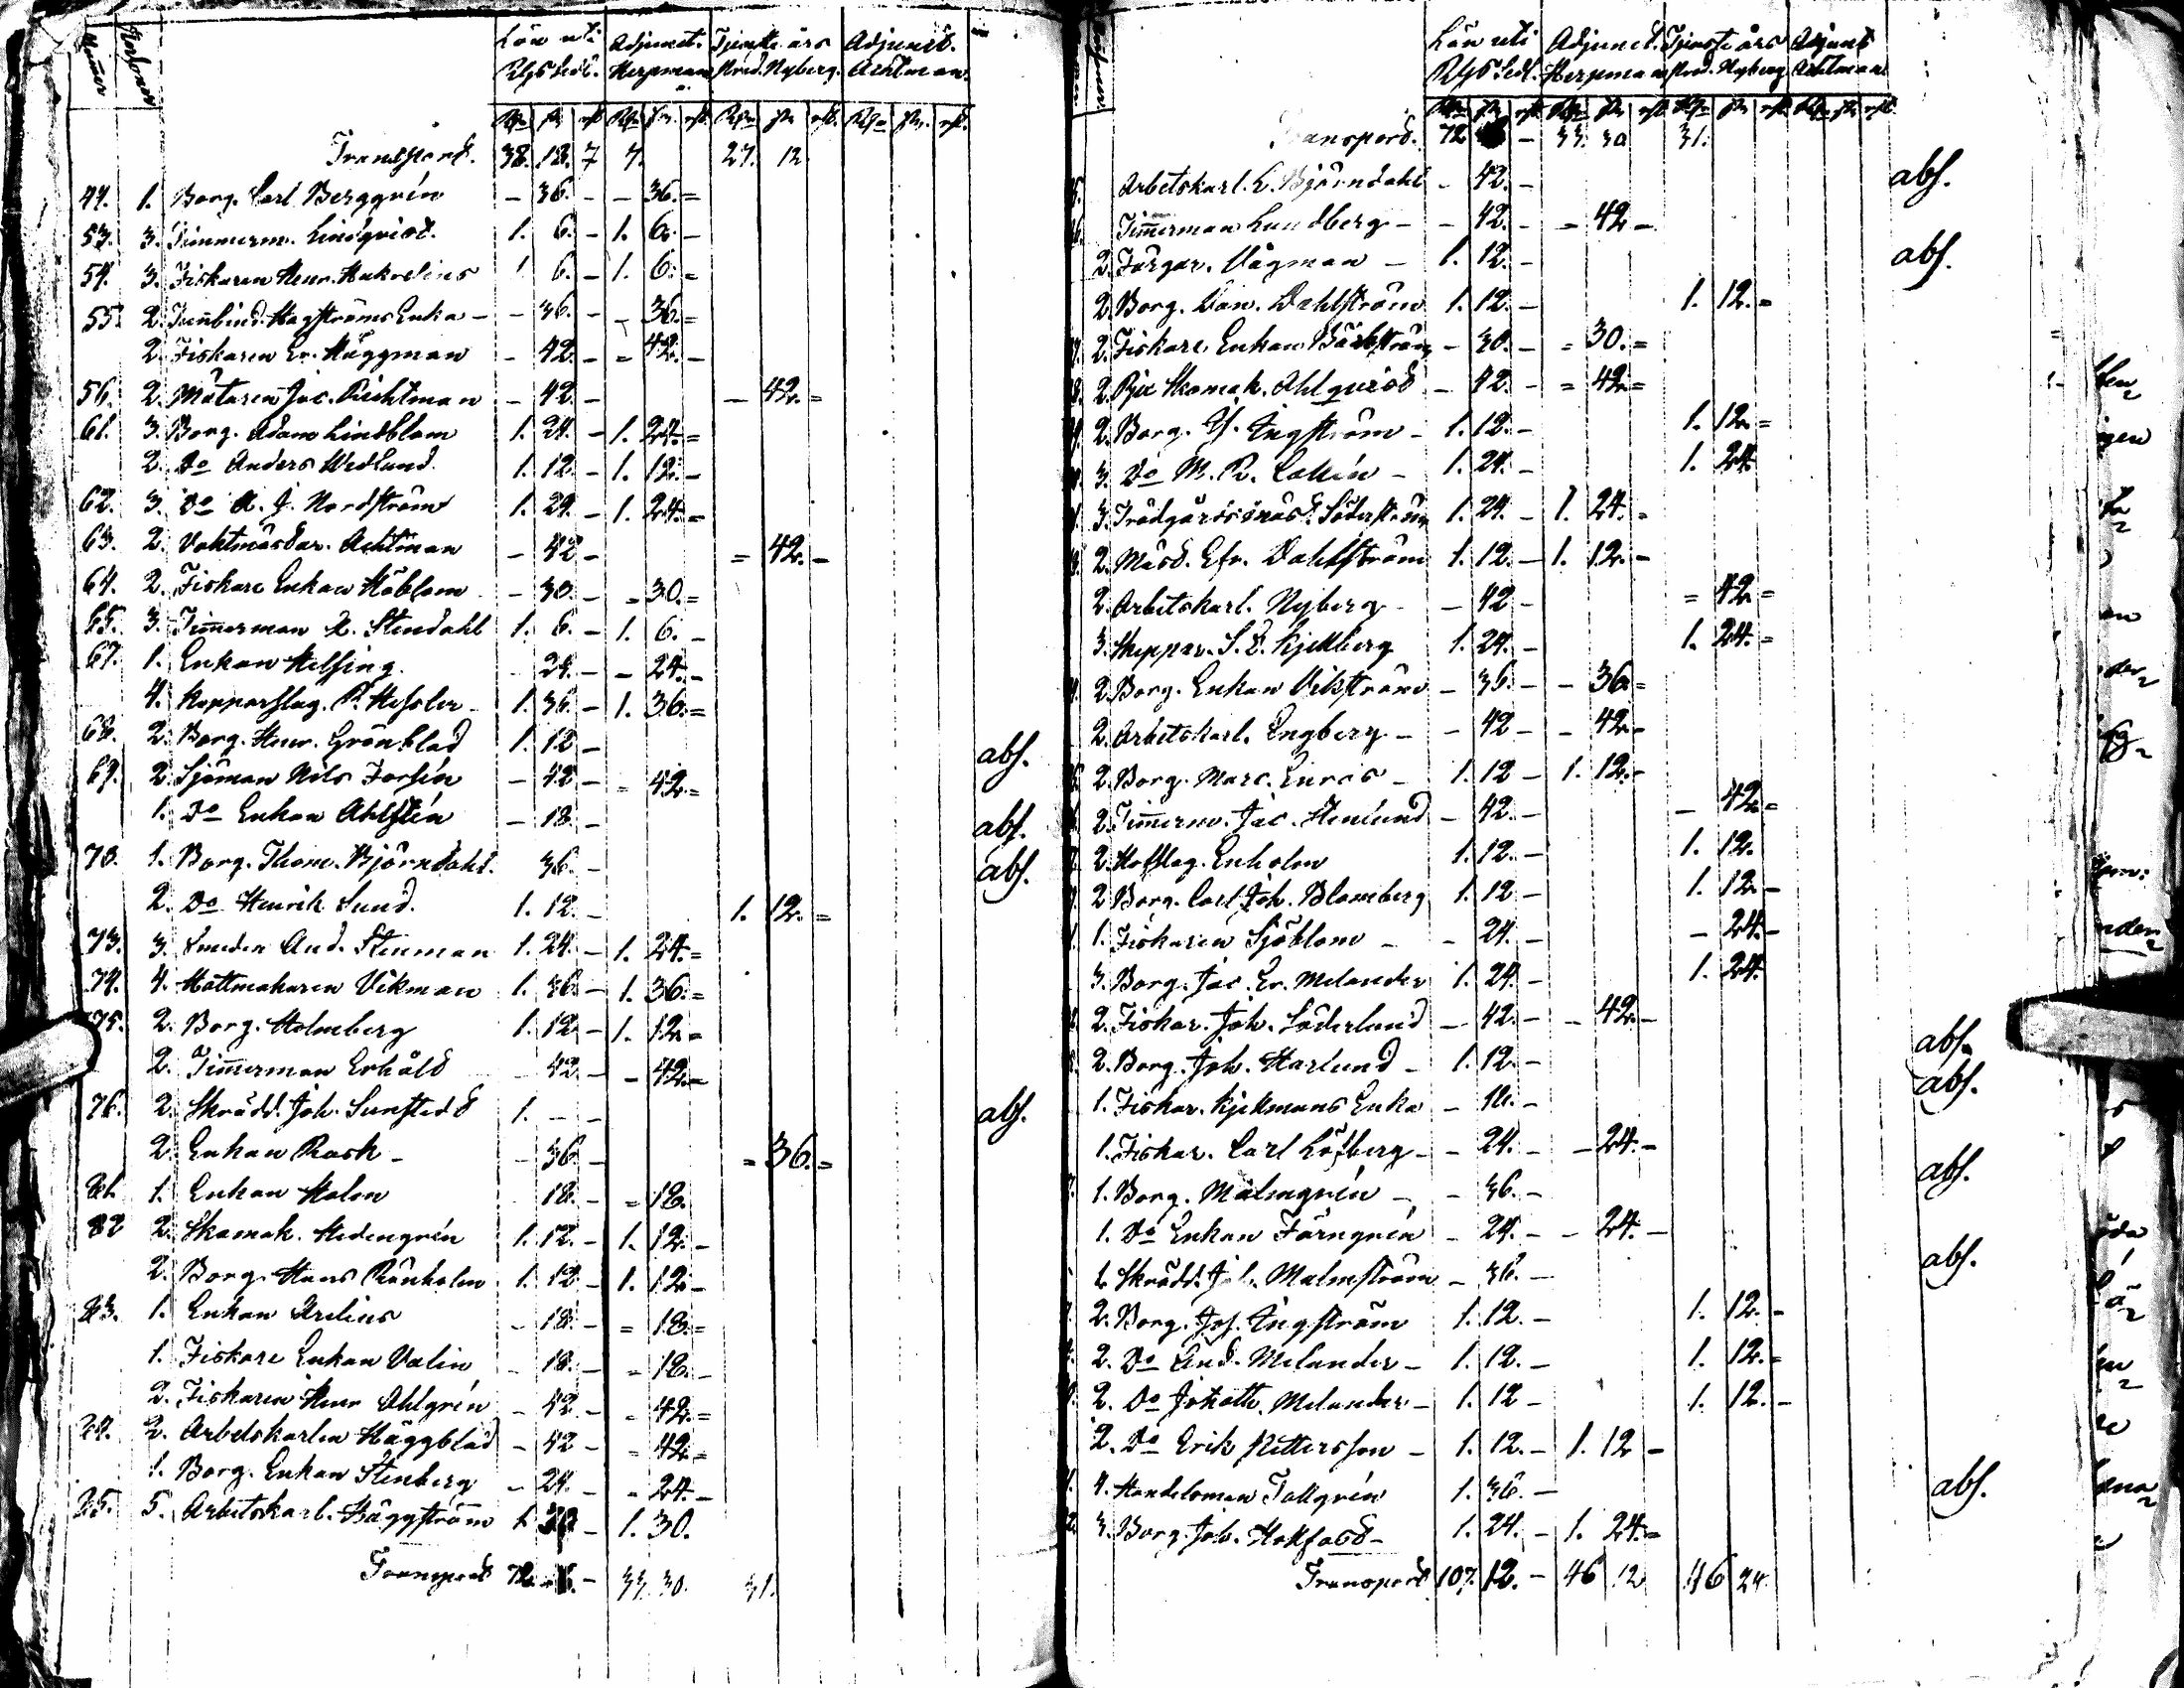 Lön uti Adjunct. Tjenste års Adjunct.
Rgs Sedl. Herpman Pred. Nyberg. Achtman.
Transport. 38. 18. 7 7. 27. 12
44. 1. Borg. Carl Berggrén - 36. - - 36. =
53. 3. Timmerm. Lindqvist. 1. 6. - 1. 6. -
54. 3. Fiskaren Henr. Hakvelius 1 6. - 1. 6. =
55. 2. Hagströms Enka - - 36. - - 36. =
2. Fiskaren Er. Häggman - 42. - = 42. -
56. 2. Mätaren Jac. Richtman - 42. - - 42. =
61. 3. Borg. Adam Lindblom 1. 24. - 1. 24. =
2. Do Anders Wedlund. 1. 12. - 1. 12. -
62. 3. Do A. J. Nordström 1. 24. - 1. 24. =
63. 2. Vaktmästar. Achtman - 42 - = 42. -
64. 2. Fiskare Enkan Höblom - 30. - = 30. =
65. 3. Timmerman A. Stendahl 1. 6. - 1. 6. -
67. 1. Enkan Helsing. 24. - - 24. -
4. Kopparslag. P. Hessler - 1. 36. - 1. 36. =
68. 2. Borg. Henr. Grönblad 1. 12 - abs.
69. 2. Sjöman Nils Forsén - 42 - = 42. =
1. Do Enkan Ahlstén - 18. - abs.
70. 1. Borg. Thom. Björndahl. 36. - abs.
2. Do Henrik Sund. 1. 12. - 1. 12. =
73. 3. Smeden And. Stenman 1. 24. - 1. 24. =
74. 4. Hattmakaren Vikman 1. 36. - 1. 36. =
75. 2. Borg. Holmberg 1. 12 - 1. 12. =
2. Timmerman Erhåld - 42. - - 42. =
76. 2. Skrädd. Joh. Sunstedt 1. - - abs.
2. Enkan Rask - - 36 - = 36. =
81. 1. Enkan Holm 18. - = 18.
82 2. Skomak. Hedengrén 1. 12. - 1. 12. -
2. Borg. Hans Rönholm 1. 12 - 1. 12. -
83. 1. Enkan Arelius - 18. - = 18. =
1. Fiskare Enkan Valin - 18. - = 18. -
2. Fiskaren Henr Ahlgrén - 42 - = 42. =
84. 2. Arbetskarlen Häggblad - 42 - = 42. =
1. Borg. Enkan Stenberg - 24. - = 24. -
85. 5. Arbetskarl. Häggström 1. 30 - 1. 30.
Transport 72. 6. - 33. 30. 31.
Lön uti Adjunct. Tjenste års Adjunct
Rgs Sedl. Herpman Pred. Nyberg Achtman
Transport. 72 - 33. 30 31.
Arbetskarl. L. Björndahl - 42. - abs.
Timmerman Lundberg - - 42. - = 42 -
2. Färgar. Vågman - 1. 12. - abs.
2. Borg. Dan. Dahlström 1. 12. - 1. 12. =
2. Fiskare Enkan Bäckström - 30. - = 30. =
2. Skomak. Ahlqvist - 42 - = 42. =
2. Borg. Engström - 1. 12. - 1. 12. =
3. Do M. R. Collin - 1. 24. - 1. 24
3. Trädgårdsmäst. Söderström 1. 24. - 1. 24. =
2. Mäst. Efr. Dahlström 1. 12. - 1. 12. -
2. Arbetskarl. Nyberg - - 42 - = 42. =
3. Skeppar. Kjellberg 1. 24. - 1. 24. =
2. Borg. Enkan Vikström - 36. - - 36. =
2. Arbetskarl. Engberg - - 42 - - 42. -
2. Borg. Marc. Enros - 1. 12 - 1. 12. -
2. Timmerm. Jac. Stenlund - 42. - - 42. =
2. Hofslag. Enholm 1. 12. - 1. 12.
2 Borg. Carl Joh. Blomberg 1. 12 - 1. 12. -
1. Fiskaren Sjöblom - - 24. - - 24. -
3. Borg. Jac. Er. Melander 1. 24. - 1. 24.
2. Fiskar. Joh. Söderlund - 42. - - 42. -
2. Borg. Joh. Harlund - 1. 12. - abs.
1. Fiskar. Kjellmans Enka - 12. - abs.
1. Fiskar. Carl Löfberg - - 24. - - 24. -
1. Borg. Malmgrén - - 36. - abs.
1. Do Enkan Färngrén - 24. - - 24. -
Skrädd. Joh. Malmström - 36. - abs.
2. Borg. Jos. Engström 1. 12. - 1. 12. -
2. Do And. Melander - 1. 12. - 1. 12. =
2. Do Joh. Melander - 1. 12 - 1. 12. -
2. Do Erik Pettersson - 1. 12. - 1. 12 -
4. Handelsman Tallgrén 1. 36. - abs.
3. Borg. Joh. Hollfast - 1. 24. - 1. 24. =
Transport 107. 12. - 46 12 46 24.